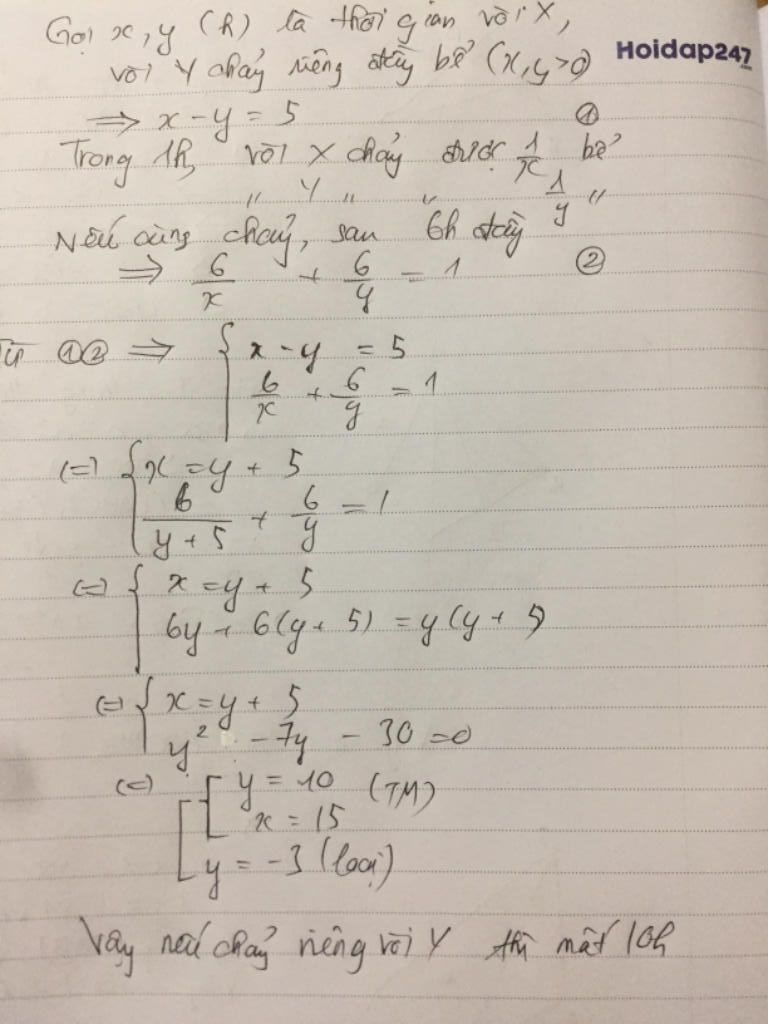 Gọi x, y (h) là thời gian vòi X,
vòi Y chảy riêng đầy bể (x,y>0)
Hoidap247
.com
⇒ x - y = 5 ①
Trong 1h, vòi X chảy được 1/x bể
" Y " " 1/y "
Nếu cùng chảy, sau 6h đầy
⇒ 6/x + 6/y = 1 ②
Từ ①② ⇒ { x - y = 5
6/x + 6/y = 1
(=) { x = y + 5
6/(y + 5) + 6/y = 1
(=) { x = y + 5
6y + 6(y + 5) = y(y + 5)
(=) { x = y + 5
y² - 7y - 30 = 0
(=) [ [ y = 10 (TM)
x = 15
y = -3 (loại)
Vậy nếu chảy riêng vòi Y thì mất 10h